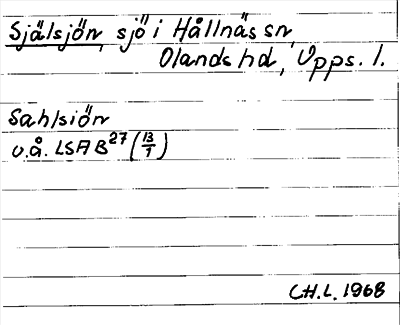 Själsjön, sjö i Hållnäs sn,
Olands hd, Upps. l.
Sahlsiön
u.å. LSA B27 (13/1)
CH.L. 1968